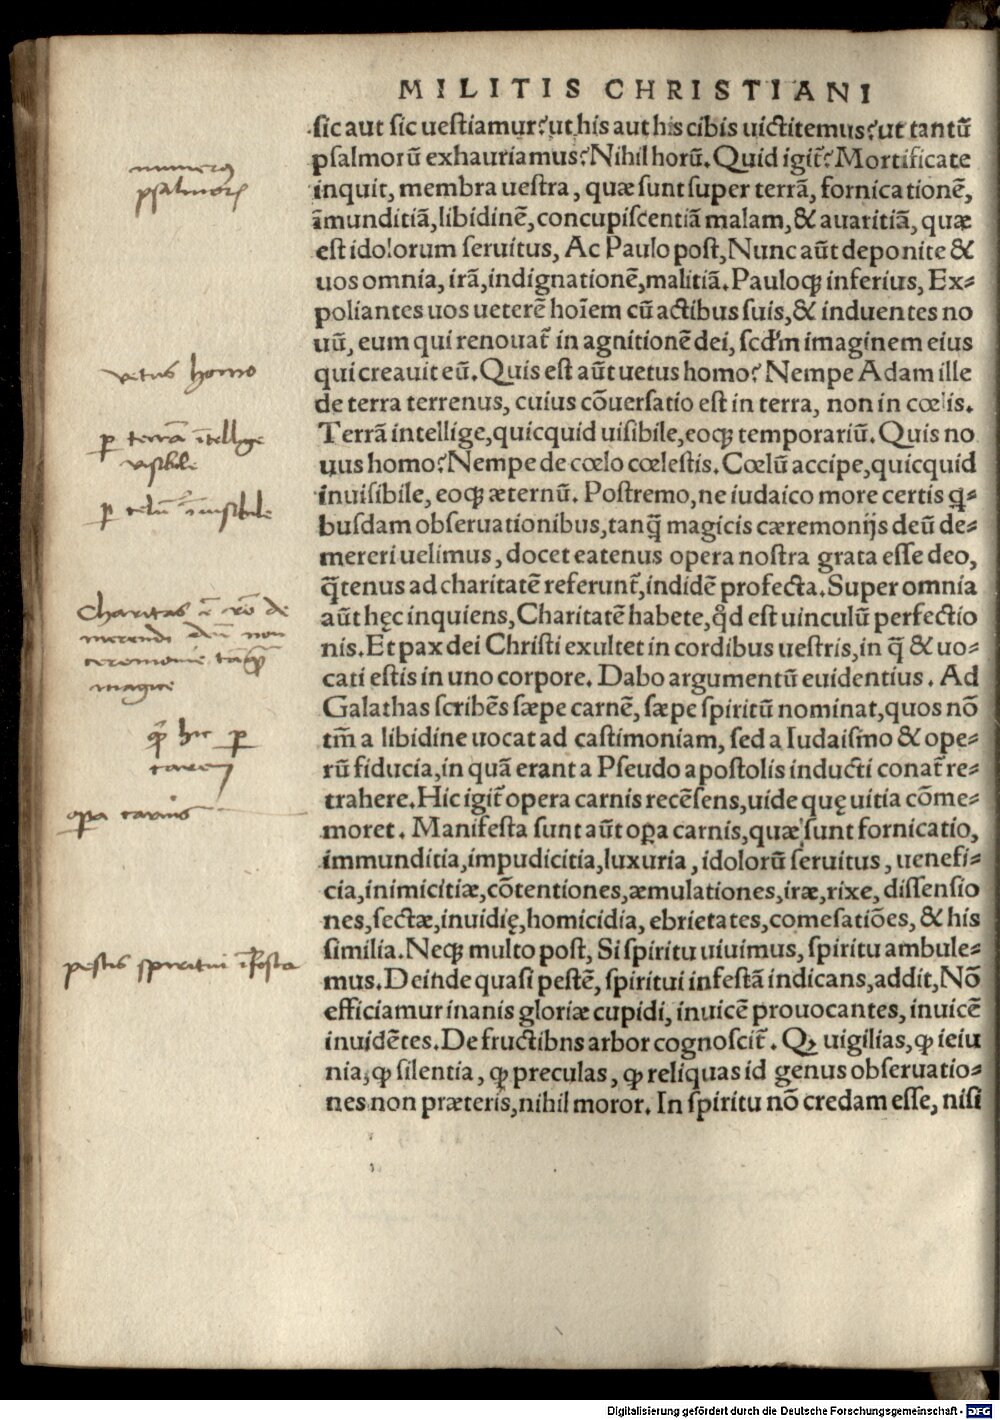 MILITIS CHRISTIANI
sic aut sic uestiamur? ut his aut his cibis uictitemus? ut tantũ
psalmorũ exhauriamus? Nihil horũ. Quid igit̃? Mortificate
inquit, membra uestra, quæ sunt super terrã, fornicationẽ,
ĩmunditiã, libidinẽ, concupiscentiã malam, & auaritiã, quæ
est idolorum seruitus, Ac Paulo post, Nunc aũt deponite &
uos omnia, irã, indignationẽ, malitiã. Pauloꝗ inferius, Ex⸗
poliantes uos ueterẽ hoĩem cũ actibus suis, & induentes no
uũ, eum qui renouat̃ in agnitionẽ dei, scđm imaginem eius
qui creauit eũ. Quis est aũt uetus homo? Nempe Adam ille
de terra terrenus, cuius cõuersatio est in terra, non in cœlis.
Terrã intellige, quicquid uisibile, eoꝗ temporariũ. Quis no
uus homo? Nempe de cœlo cœlestis. Cœlũ accipe, quicquid
inuisibile, eoꝗ æternũ. Postremo, ne iudaico more certis q̃⸗
busdam obseruationibus, tanq̃ magicis cæremonijs deũ de⸗
mereri uelimus, docet eatenus opera nostra grata esse deo,
q̃tenus ad charitatẽ referunt̃, indidẽ profecta. Super omnia
aũt hęc inquiens, Charitatẽ habete, qđ est uinculũ perfectio
nis. Et pax dei Christi exultet in cordibus uestris, in q̃ & uo⸗
cati estis in uno corpore. Dabo argumentũ euidentius. Ad
Galathas scribẽs sæpe carnẽ, sæpe spiritũ nominat, quos nõ
tm̃ a libidine uocat ad castimoniam, sed a Iudaismo & ope⸗
rũ fiducia, in quã erant a Pseudo apostolis inducti conat̃ re⸗
trahere. Hic igit̃ opera carnis recẽsens, uide quę uitia cõme⸗
moret. Manifesta sunt aũt oꝑa carnis, quæ sunt fornicatio,
immunditia, impudicitia, luxuria, idolorũ seruitus, uenefi⸗
cia, inimicitiæ, cõtentiones, æmulationes, iræ, rixe, dissensio
nes, sectæ, inuidię, homicidia, ebrietates, comesatiões, & his
similia. Neꝗ multo post, Si spiritu uiuimus, spiritu ambule⸗
mus. Deinde quasi pestẽ, spiritui infestã indicans, addit, Nõ
efficiamur inanis gloriæ cupidi, inuicẽ prouocantes, inuicẽ
inuidẽtes. De fructibns arbor cognoscit̃. Ꝙ uigilias, ꝙ ieiu
nia, ꝙ silentia, ꝙ preculas, ꝙ reliquas id genus obseruatio⸗
nes non præteris, nihil moror. In spiritu nõ credam esse, nisi
numerꝰ
psalmoꝝ
vetus homo
ꝑ terrã ĩtellige
visibile
ꝑ celũ ĩuisibile
Charitas ẽ rõ de
merendi deũ non
ceremonie tãq̃
magice
hic ꝑ
carnẽ
oꝑa carnis
pestis spiritui ĩfesta
Digitalisierung gefördert durch die Deutsche Forschungsgemeinschaft - DFG